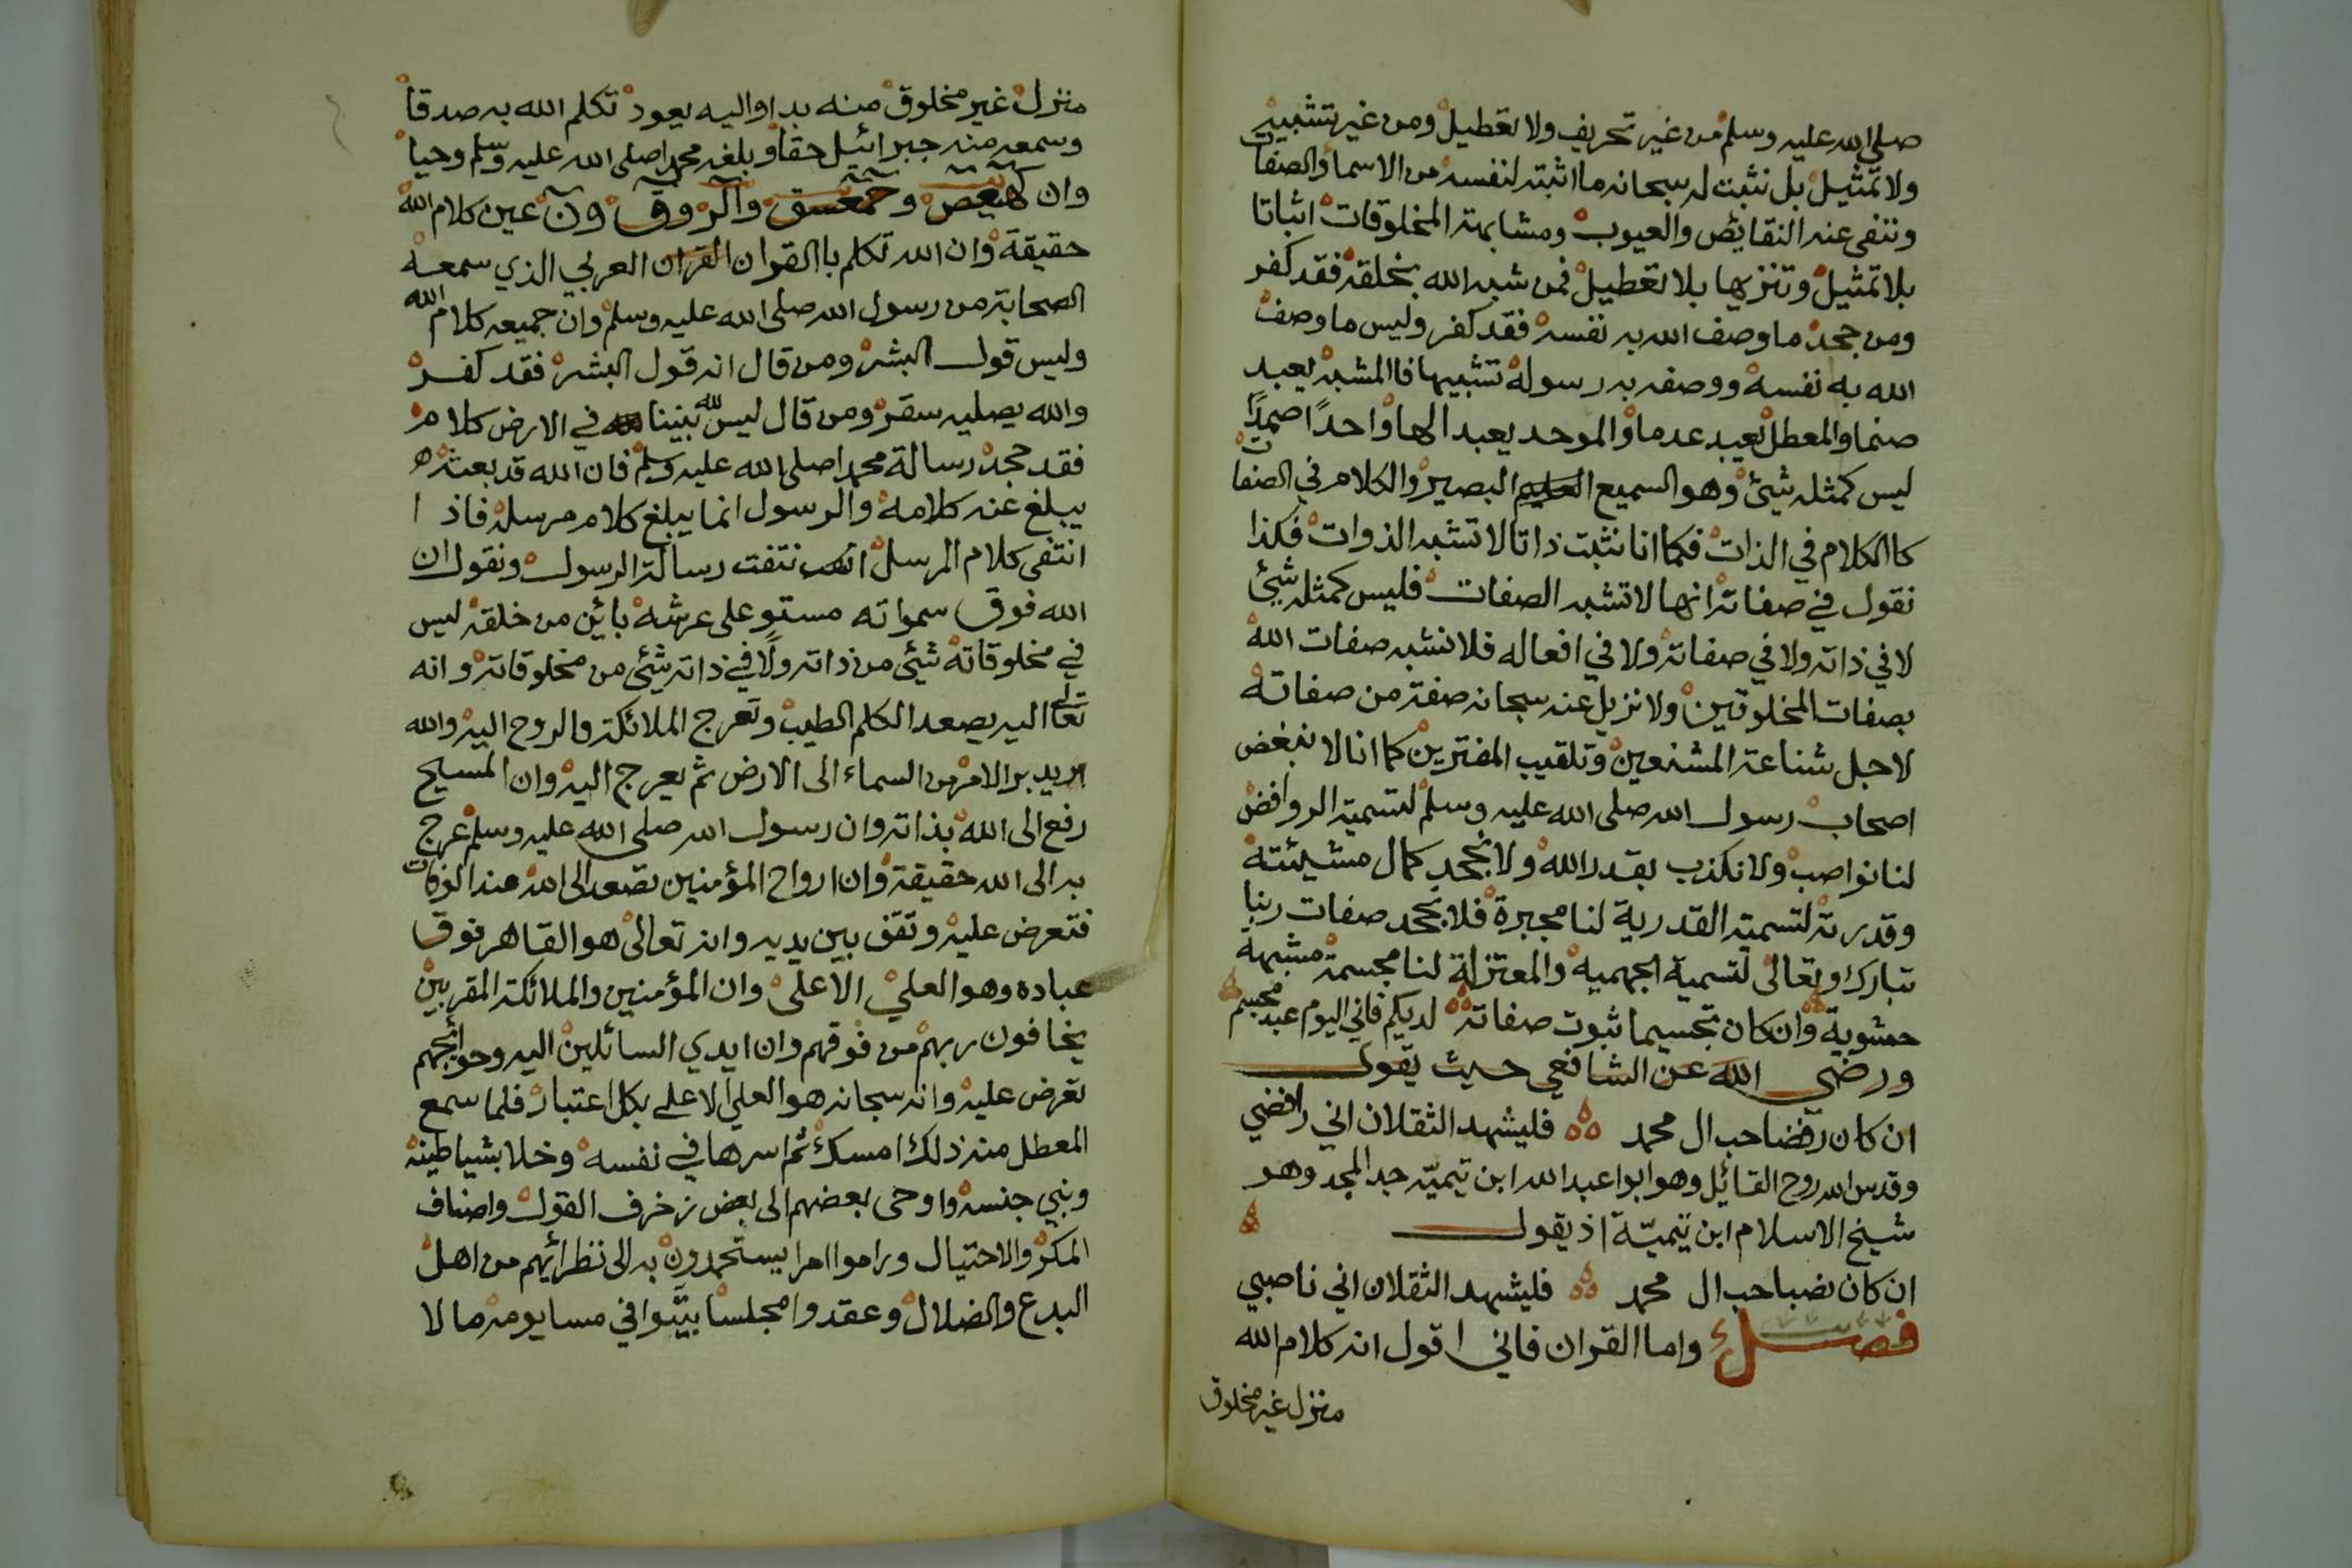 صلى الله عليه وسلم من غير تحريف ولا تعطيل ومن غير تشبيه
ولا تمثيل بل نثبت له سبحانه ما اثبته لنفسه من الاسماء والصفات
وننفى عنه النقايص والعيوب ومشابهة المخلوقات اثباتا
بلا تمثيل وتنزيها بلا تعطيل فمن شبه الله بخلقه فقد كفر
ومن جحد ما وصف الله به نفسه فقد كفر وليس ما وصف
الله به نفسه ووصفه به رسوله تشبيها فاالمشبه يعبد
صنما والمعطل يعبد عدما والموحد يعبد الها واحدًا صمدًا
ليس كمثله شيئ وهو السميع البصير والكلام في الصفات
كاالكلام في الذات فكما انا نثبت ذاتا لا تشبه الذوات فكذا
نقول في صفاته انها لا تشبه الصفات فليس كمثله شيئ
لا في ذاته ولا في صفاته ولا في افعاله فلا نشبه صفات الله
بصفات المخلوقين ولا نزيل عنه سبحانه صفة من صفاته
لاجل شناعة المشنعين وتلقيب المفترين كما انا لا نبغض
اصحاب رسول الله صلى الله عليه وسلم لتسمية الروافض
لنا نواصب ولا نكذب بقدر الله ولا نجحد كمال مشيئته
وقدرته لتسمية القدرية لنا مجبرة فلا نجحد صفات ربنا
تبارك وتعالى لتسمية الجهمية والمعتزلة لنا مجسمة مشبهة
حشوية وان كان تجسيما ثبوت صفاته لديكم فاني اليوم عبد مجسم
ورضى الله عن الشافعي حيث يقول
ان كان رفضا حب ال محمد فليشهد الثقلان اني رافضي
وقدس الله روح القائيل وهو ابوا عبد الله ابن تيميّه جد المجد وهو
شيخ الاسلام ابن تيميّة اذ يقول
ان كان نصبا حب ال محمد فليشهد الثقلان اني ناصبي
فصل واما القران فاني اقول انه كلام الله
منزل غير مخلوق
منزل غير مخلوق منه بدا واليه يعود تكلم الله به صدقا
وسمعه منه جبرائيل حقا وبلغه محمد اصلى الله عليه وسلم وحيا
وان كهيعص وحمعسق والر وق ون عين كلام الله
حقيقة وان الله تكلم باالقران القران العربي الذي سمعه
الصحابة من رسول الله صلى الله عليه وسلم وان جميعه كلام الله
وليس قول البشر ومن قال انه قول البشر فقد كفر
والله يصليه سقر ومن قال ليس لله بيننا في الارض كلام
فقد جحد رسالة محمد اصلى الله عليه وسلم فان الله قد بعثه
يبلغ عنه كلامه والرسول انما يبلغ كلام مرسله فاذا
انتفى كلام المرسل انتفت رسالة الرسول ونقول ان
الله فوق سمواته مستو على عرشه بائين من خلقه ليس
في مخلوقاته شيئ من ذاته ولا في ذاته شيئ من مخلوقاته وانه
تعالى اليه يصعد الكلم الطيب وتعرج الملائكة والروح اليه والله
يدبر الامر من السماء الى الارض ثم يعرج اليه وان المسيح
رفع الى الله بذاته وان رسول الله صلى الله عليه وسلم عرج
به الى الله حقيقة وان ارواح المؤمنين تصعد الى الله عند الوفات
فتعرض عليه وتقف بين يديه وانه تعالى هو القاهر فوق
عباده وهو العلي الاعلى وان المؤمنين والملائكة المقربين
يخافون ربهم من فوقهم وان ايدي السائلين اليه وحوائجهم
تعرض عليه وانه سبحانه هو العلي الاعلى بكل اعتبار فلما سمع
المعطل منه ذلك امسك ثم اسرها في نفسه وخلا بشياطينه
وبني جنسه واوحى بعضهم الى بعض زخرف القول واصناف
المكر والاحتيال وراموا امرا يستحمدون به الى نظرائهم من اهل
البدع والضلال وعقدوا مجلسا بيّتوا في مسا يومه ما لا